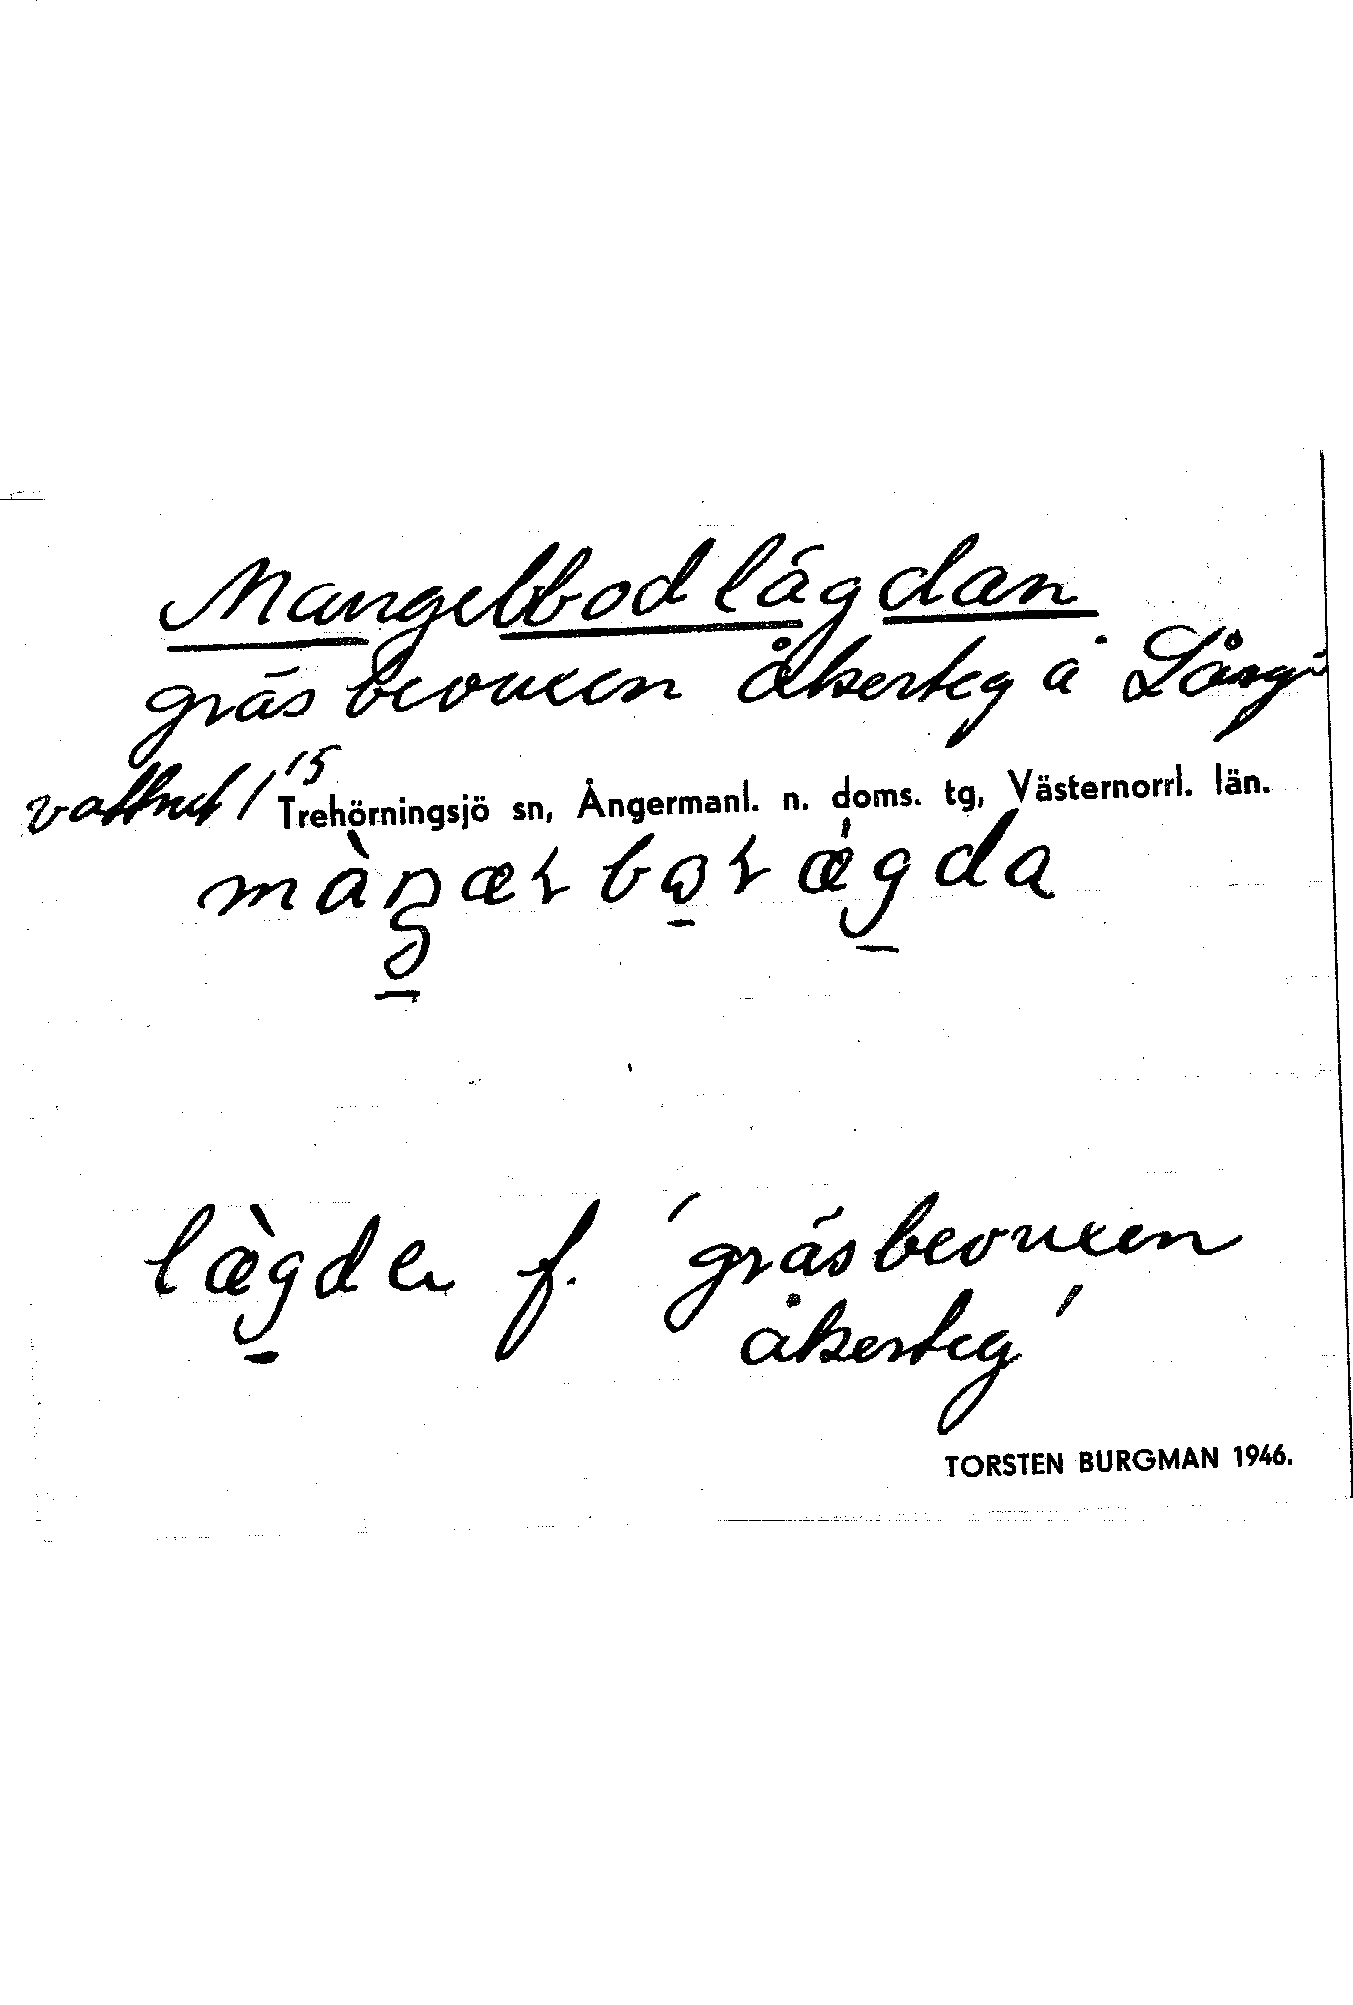 Mangelbodlägdan
gräsbevuxen åkerteg å Lång-
vattnet 1¹⁵
Trehörningsjö sn, Ångermanl. n. doms. tg, Västernorrl. län.
lægda f. 'gräsbevuxen
åkerteg'
TORSTEN BURGMAN 1946.